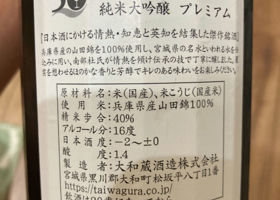 純米大吟醸 プレミアム
【日本酒にかける情熱・知恵と英知を結集した傑作銘酒】
兵庫県産の山田錦を100%使用し、宮城県の名水といわれる水を仕
込みに用い、南部杜氏が情熱を傾け伝承の技で丁寧に醸した、果
実を思わせるほのかな香りと芳醇でキレのある味わいをお楽しみ下さい。
原材料名：米(国産)、米こうじ(国産米)
使用米：兵庫県産山田錦100%
精米歩合：40%
アルコール分：16度
日本酒度：-2～±0
酸度：1.4
製造者：大和蔵酒造株式会社
宮城県黒川郡大和町松坂平八丁目1番
https://taiwagura.co.jp/